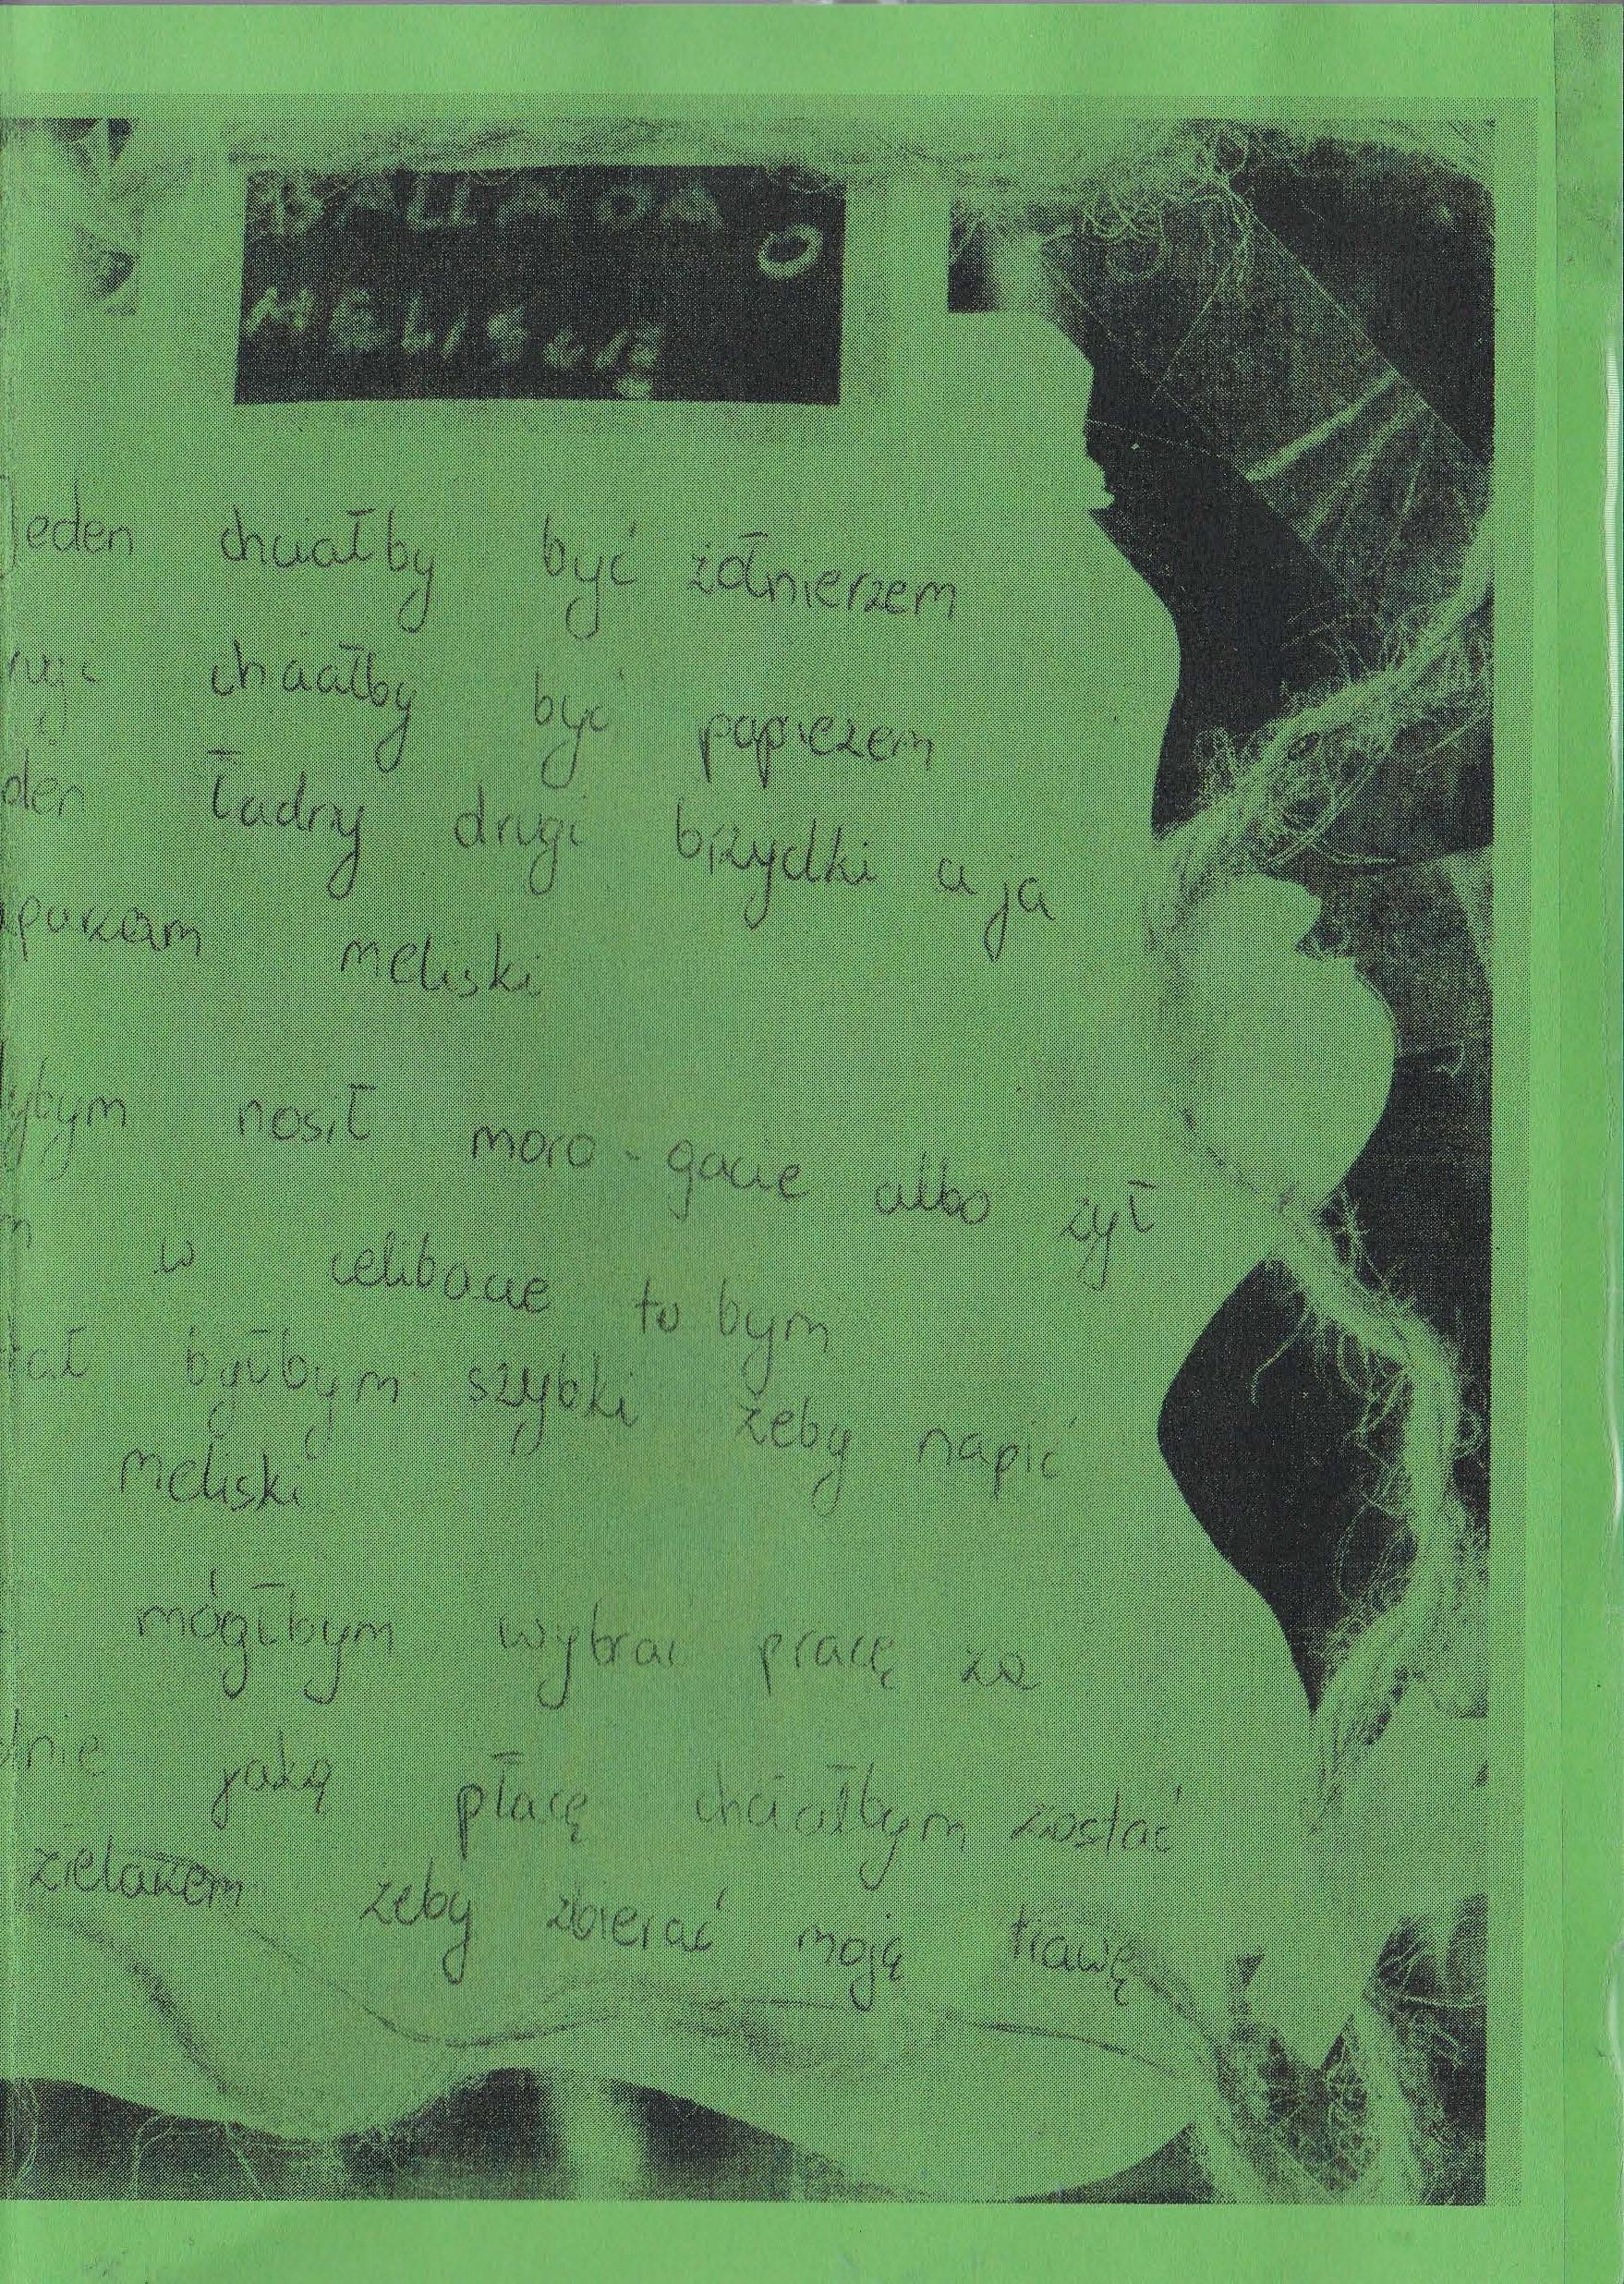 BALLADA O
MELISIE
Jeden chciałby być żółnierzem
chciałby być papieżem
ładny drugi brzydki a ja
meliski
nosił moro-gacie albo żył
w celibacie to bym
byłbym szybki żeby napić
meliski
mógłbym wybrać pracę za
jaką płacę chciałbym zostać
zielarzem żeby zbierać moją trawę